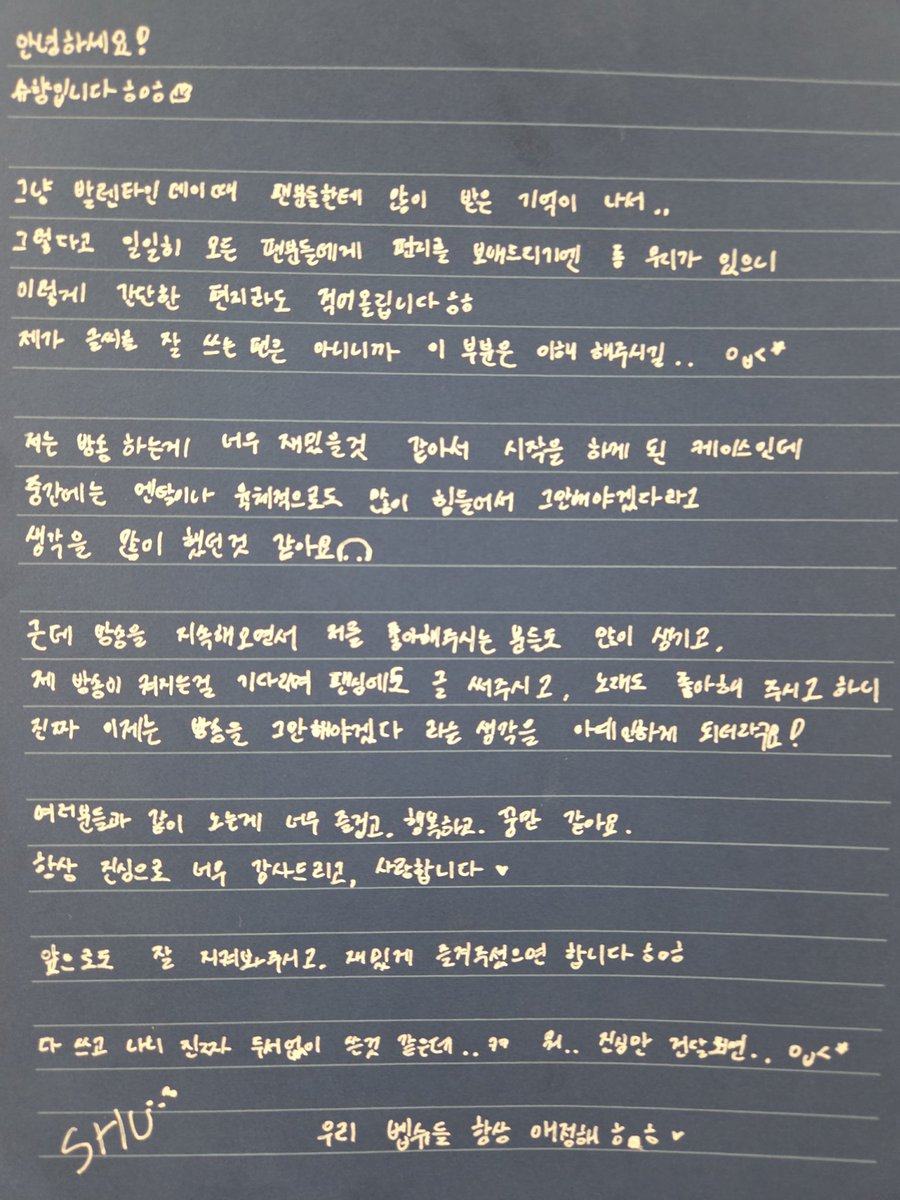 안녕하세요!
슈향입니다 ㅎㅇㅎ
그냥 발렌타인 데이 때 팬분들한테 많이 받은 기억이 나서..
그렇다고 일일히 모든 팬분들에게 편지를 보내드리기엔 좀 무리가 있으니
이렇게 간단한 편지라도 적어올립니다 ㅎㅎ
제가 글씨를 잘 쓰는 편은 아니니까 이 부분은 이해 해주시길.. ㅇㅅ<*
저는 방송 하는게 너무 재밌을것 같아서 시작을 하게 된 케이스인데
중간에는 멘탈이나 육체적으로도 많이 힘들어서 그만해야겠다라고
생각을 많이 했던것 같아요
근데 방송을 지속해오면서 저를 좋아해주시는 분들도 많이 생기고,
제 방송이 켜지는걸 기다리며 팬심에도 글 써주시고, 노래도 좋아해 주시고 하니
진짜 이제는 방송을 그만해야겠다 라는 생각을 아예 안하게 되더라구요!
여러분들과 같이 노는게 너무 즐겁고, 행복하고, 꿈만 같아요.
항상 진심으로 너무 감사드리고, 사랑합니다 ♥
앞으로도 잘 지켜봐주시고, 재밌게 즐겨주셨으면 합니다 ㅎㅇㅎ
다 쓰고 나니 진짜 두서없이 쓴것 같은데..ㅋㅋ 뭐.. 진심만 전달되면.. ㅇㅅ<*
SHU
우리 벱슈들 항상 애정해 ㅎㅅㅎ ♥